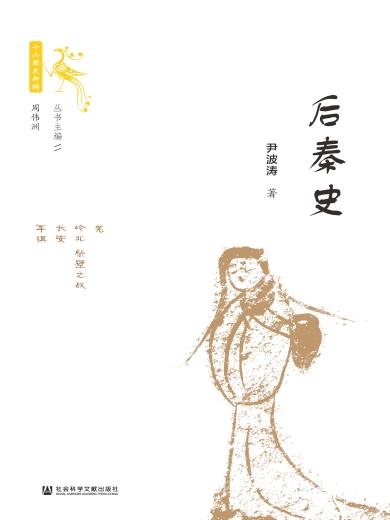 后秦史
尹波涛 著
十六国史新编
丛书主编∥
周伟洲
羌
岭北 柴壁之战
长安
军镇
社会科学文献出版社
SOCIAL SCIENCES ACADEMIC PRESS (CHINA)